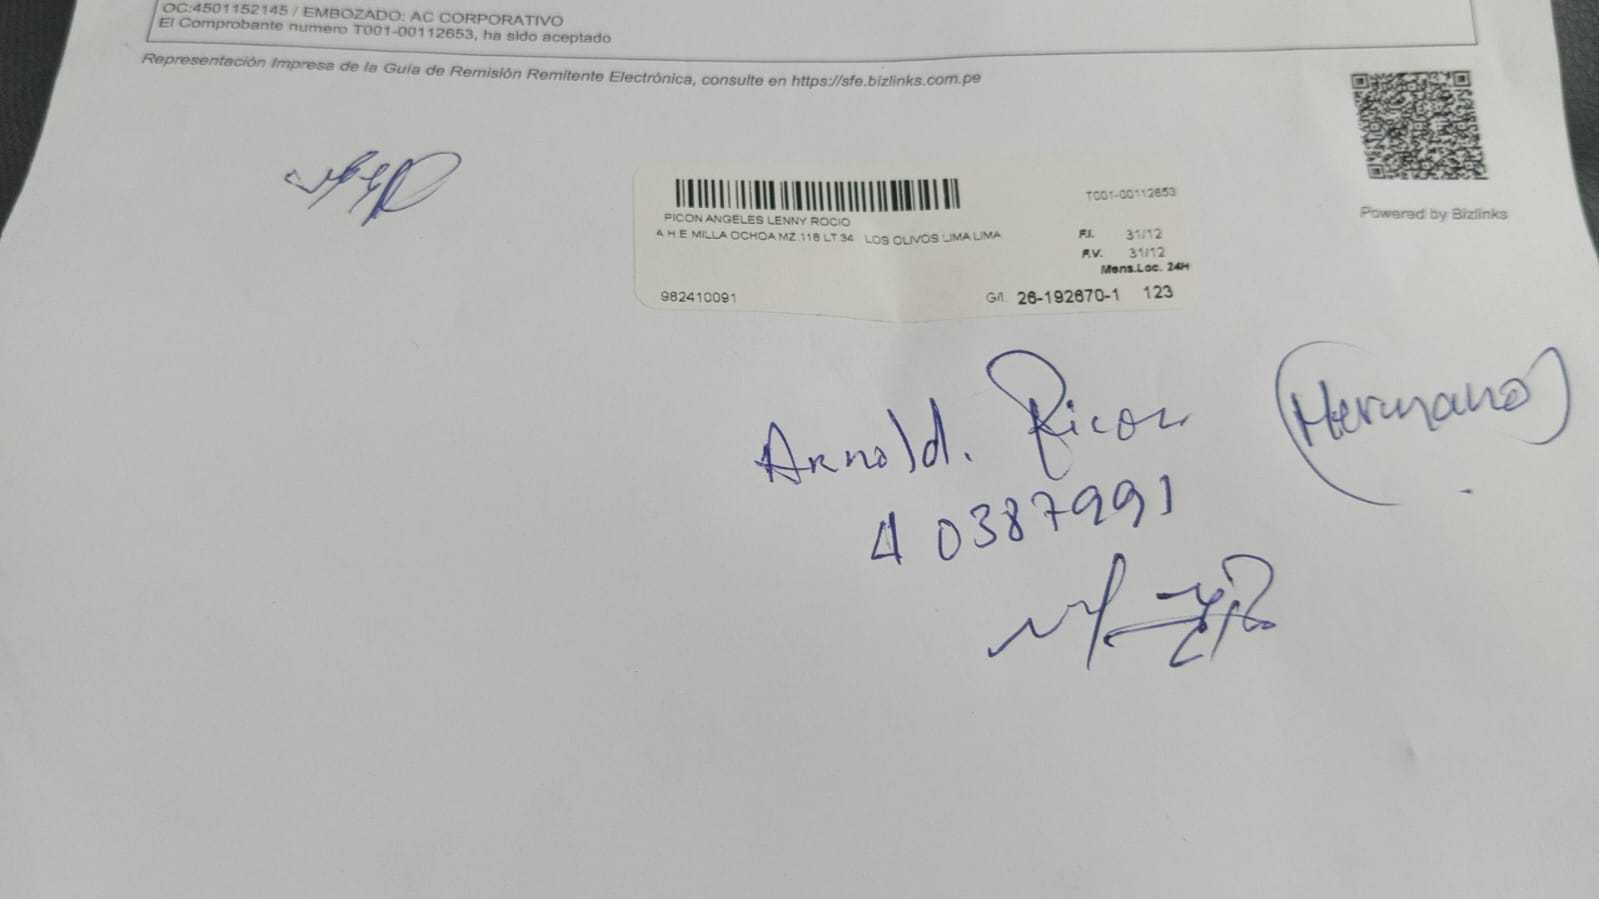 OC:4501152145 / EMBOZADO: AC CORPORATIVO
El Comprobante numero T001-00112653, ha sido aceptado
Representación Impresa de la Guía de Remisión Remitente Electrónica, consulte en https://sfe.bizlinks.com.pe
Powered by Bizlinks
T001-00112653
PICON ANGELES LENNY ROCIO
A.H.E MILLA OCHOA MZ.118 LT.34 LOS OLIVOS LIMA LIMA
F.I. 31/12
F.V. 31/12
Mens.Loc. 24H
982410091
G/I. 26-192670-1 123
Arnold. Picon (Hermano)
40387991